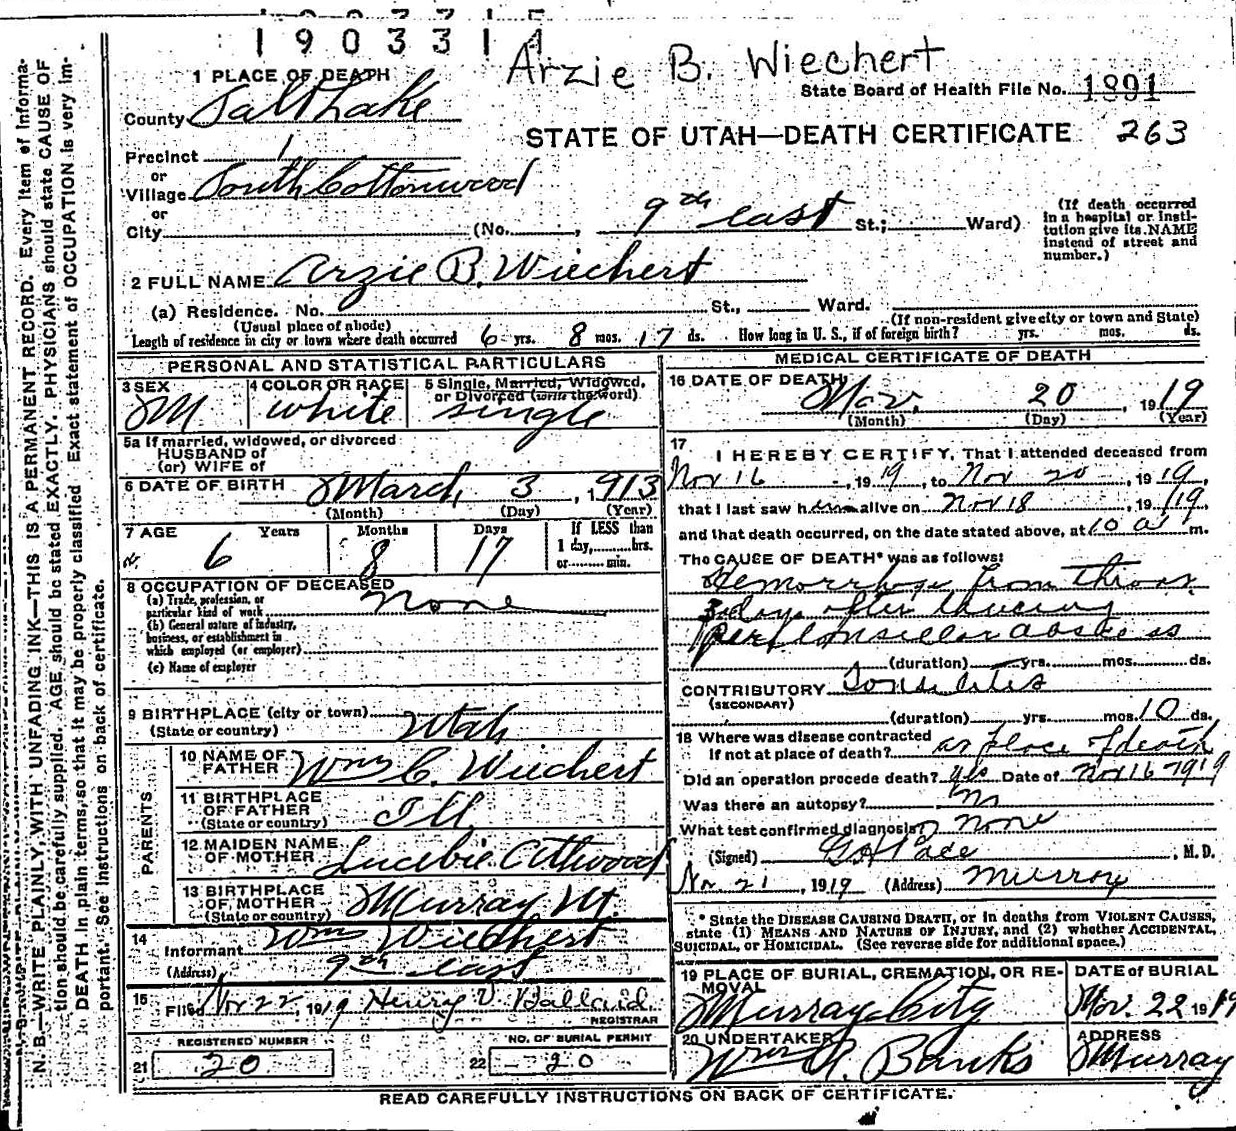 1903314
Arzie B. Wiechert
State Board of Health File No. 1891
STATE OF UTAH—DEATH CERTIFICATE 263
1 PLACE OF DEATH
County Salt Lake
Precinct 1
or
Village South Cottonwood
or
City (No. , 9th east St.; Ward)
(If death occurred in a hospital or institution give its NAME instead of street and number.)
2 FULL NAME Arzie B. Wiechert
(a) Residence. No. St., Ward.
(Usual place of abode) (If non-resident give city or town and State)
Length of residence in city or town where death occurred 6 yrs. 8 mos. 17 ds. How long in U. S., if of foreign birth? yrs. mos. ds.
PERSONAL AND STATISTICAL PARTICULARS
3 SEX
M
4 COLOR OR RACE
white
5 Single, Married, Widowed, or Divorced (write the word)
single
5a If married, widowed, or divorced
HUSBAND of
(or) WIFE of
6 DATE OF BIRTH March 3, 1913
(Month) (Day) (Year)
7 AGE Years Months Days If LESS than
6 8 17 1 day, hrs.
or min.
8 OCCUPATION OF DECEASED
(a) Trade, profession, or
particular kind of work none
(b) General nature of industry,
business, or establishment in
which employed (or employer)
(c) Name of employer
9 BIRTHPLACE (city or town)
(State or country) Utah
PARENTS
10 NAME OF FATHER Wm C. Wiechert
11 BIRTHPLACE OF FATHER
(State or country) Ill
12 MAIDEN NAME OF MOTHER Atwood
13 BIRTHPLACE OF MOTHER
(State or country) Murray Ut.
14 Informant Wm Wiechert
(Address) 9th east
15 Filed Nov 22, 1919 Henry V.
REGISTRAR
REGISTERED NUMBER
21 20
NO. OF BURIAL PERMIT
22 20
MEDICAL CERTIFICATE OF DEATH
16 DATE OF DEATH
Nov. 20, 1919
(Month) (Day) (Year)
17 I HEREBY CERTIFY, That I attended deceased from
Nov 16, 1919, to Nov 20, 1919,
that I last saw him alive on Nov 18, 1919,
and that death occurred, on the date stated above, at 10 a m.
The CAUSE OF DEATH* was as follows:
Hemorrhage from throat
3 days after lancing
peritonsillar abscess
(duration) yrs. mos. ds.
CONTRIBUTORY Tonsilitis
(SECONDARY)
(duration) yrs. mos. 10 ds.
18 Where was disease contracted
if not at place of death? at place of death
Did an operation precede death? yes Date of Nov 16 1919
Was there an autopsy? no
What test confirmed diagnosis? none
(Signed) , M. D.
Nov 21, 1919 (Address) Murray
* State the DISEASE CAUSING DEATH, or in deaths from VIOLENT CAUSES,
state (1) MEANS AND NATURE OF INJURY, and (2) whether ACCIDENTAL,
SUICIDAL, or HOMICIDAL. (See reverse side for additional space.)
19 PLACE OF BURIAL, CREMATION, OR REMOVAL
Murray City
DATE of BURIAL
Nov. 22 1919
20 UNDERTAKER
Wm R. Banks
ADDRESS
Murray
READ CAREFULLY INSTRUCTIONS ON BACK OF CERTIFICATE.
N. B.—WRITE PLAINLY, WITH UNFADING INK—THIS IS A PERMANENT RECORD. Every item of information should be carefully supplied. AGE should be stated EXACTLY. PHYSICIANS should state CAUSE OF DEATH in plain terms, so that it may be properly classified. Exact statement of OCCUPATION is very important. See instructions on back of certificate.